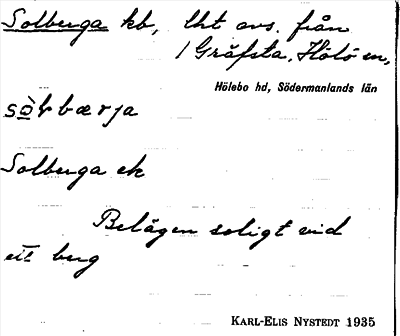 Solberga kb, lht avs. från
1 Gräfsta, Hölö sn,
Hölebo hd, Södermanlands län
sò̱ɫbærja
Solberga ek
Belägen soligt vid
ett berg
KARL-ELIS NYSTEDT 1935